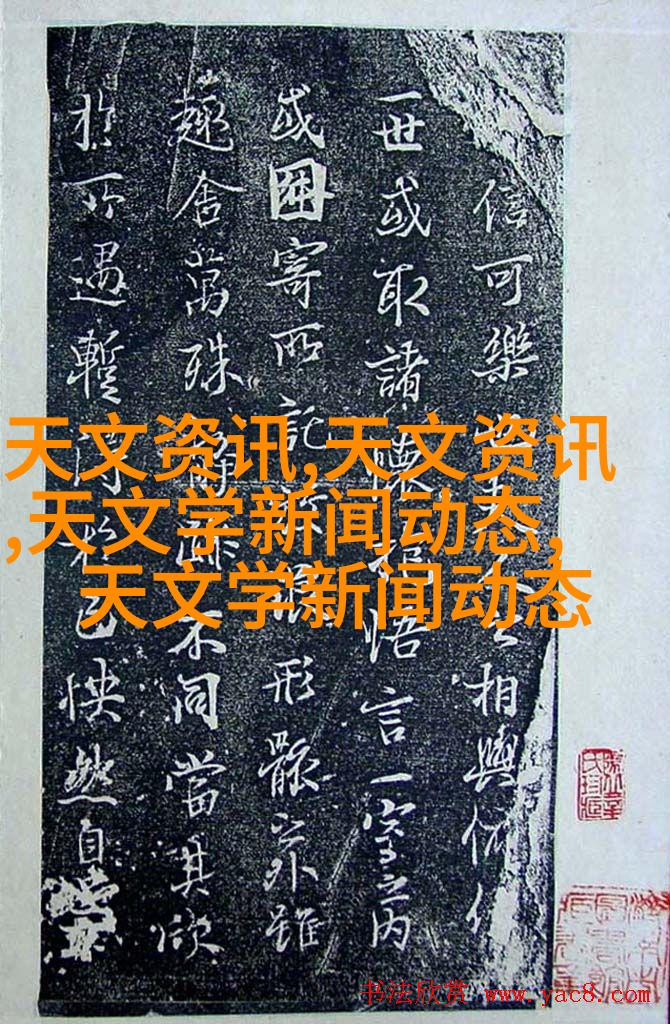 信可樂也夫人之相與俯仰
一世或取諸懷抱悟言一室之內
或因寄所託放浪形骸之外雖
趣舍萬殊靜躁不同當其欣
於所遇暫得於己快然自
天文资讯,天文资讯
,天文学新闻动态,
天文学新闻动态
书法欣赏 www.yac8.com